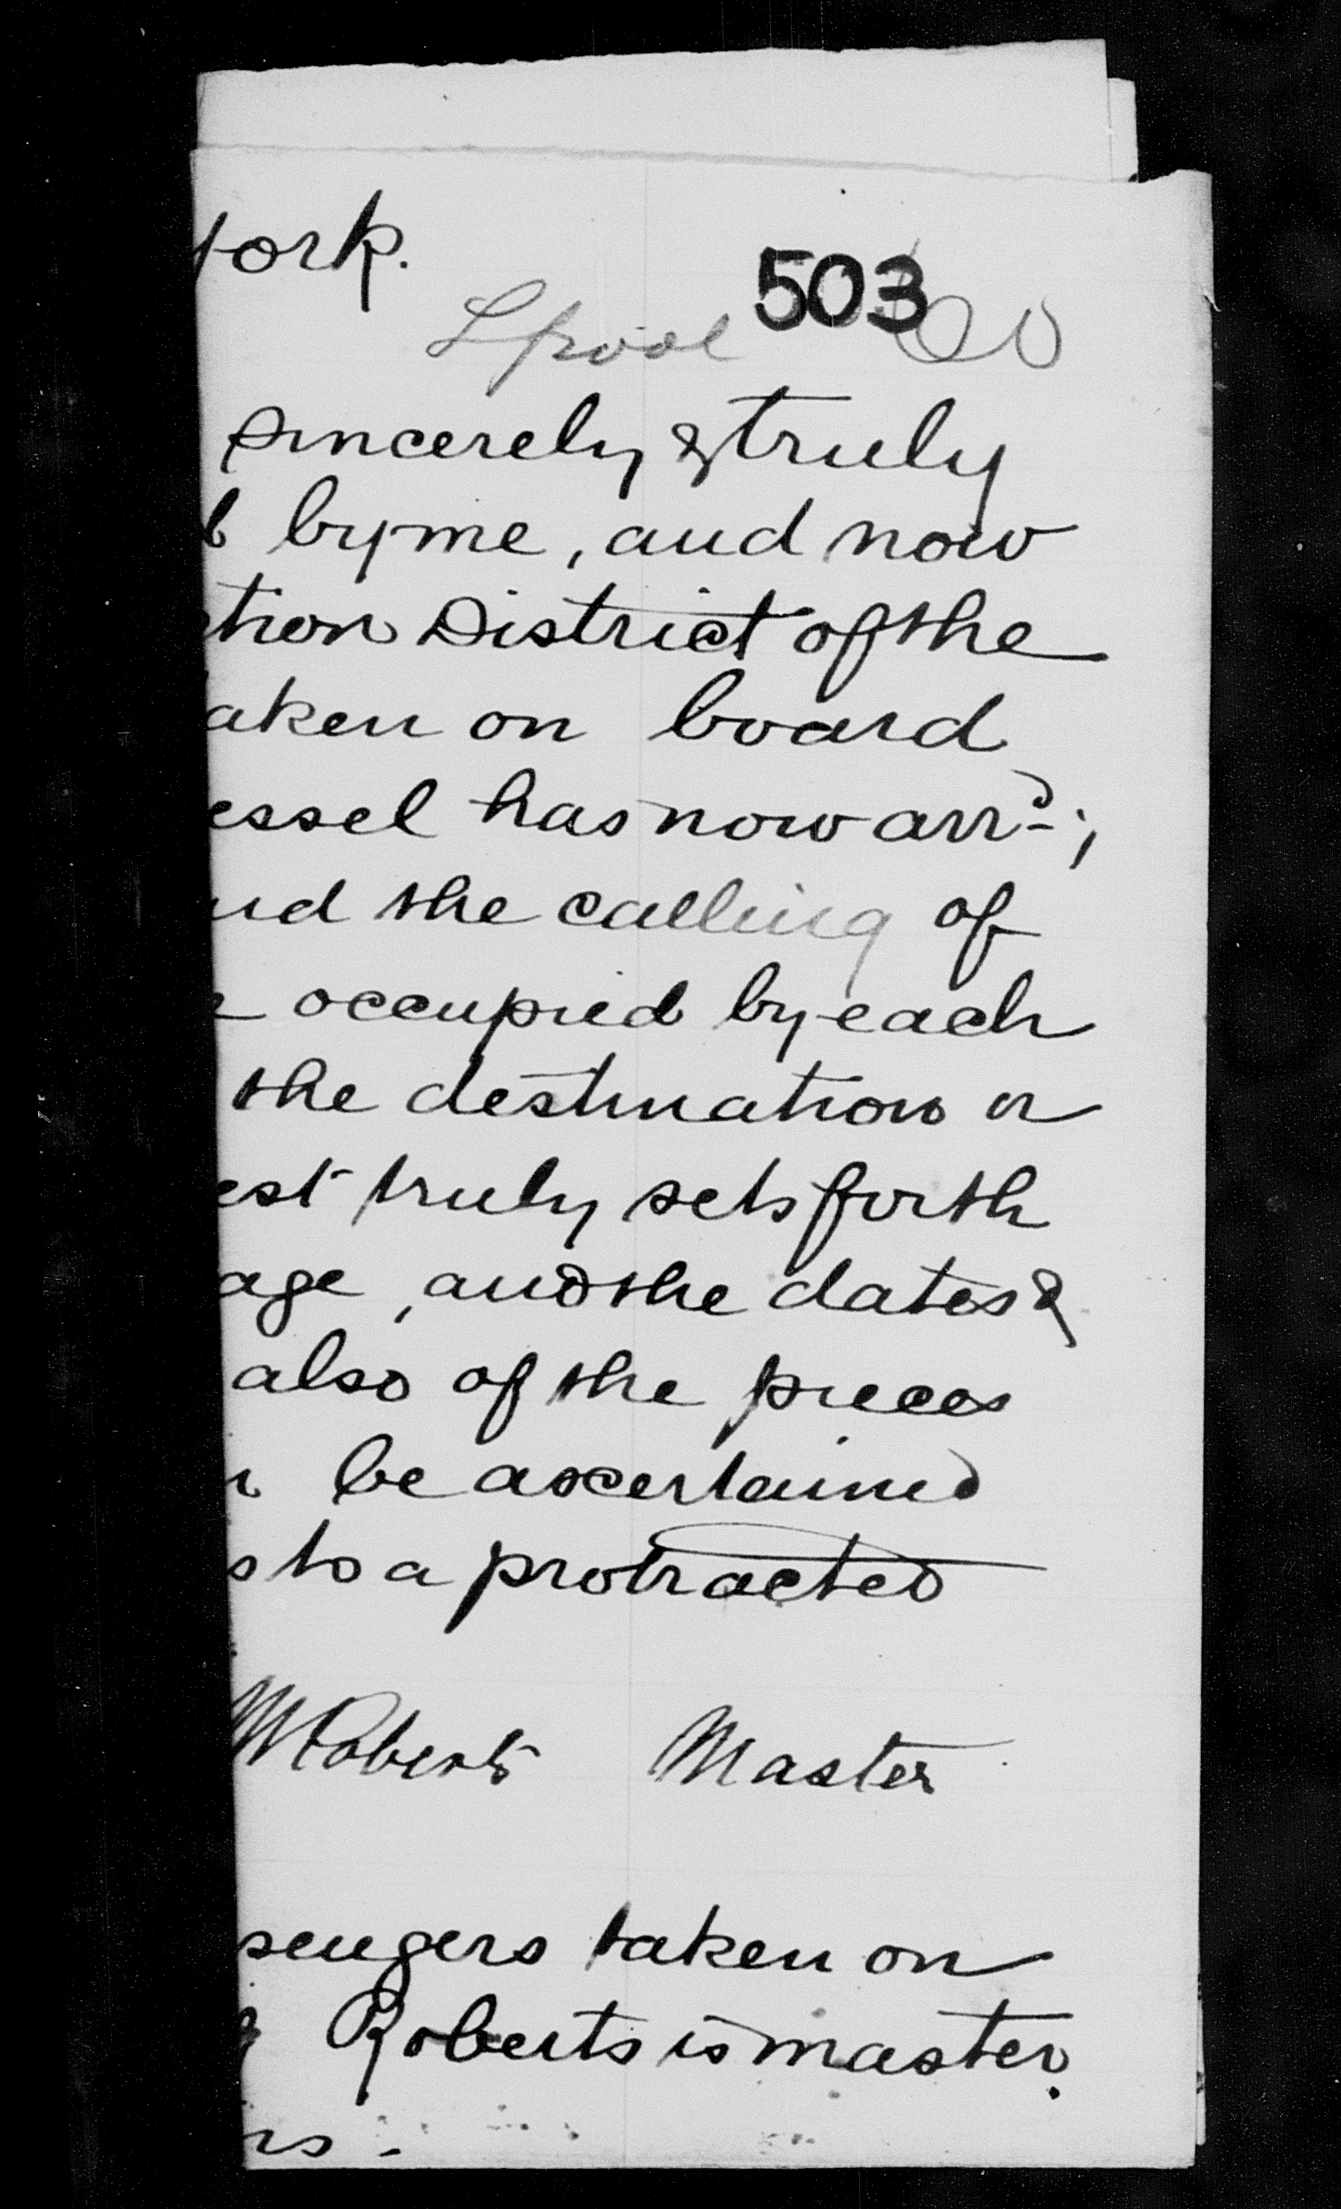 york.
503
Lpool
sincerely & truly
by me, and now
tion District of the
aken on board
essel has now arrd;
nd the calling of
occupied by each
the destination or
est truly sets forth
age, and the dates &
also of the pieces
be ascertained
s to a protracted
M Roberts Master
sengers taken on
Roberts is master
rs.